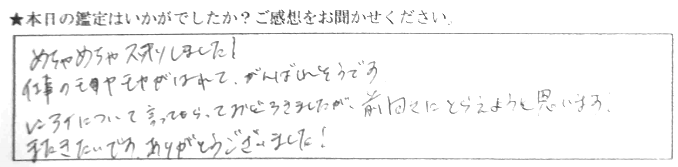 ★本日の鑑定はいかがでしたか？ご感想をお聞かせください。
めちゃめちゃスッキリしました！
仕事のモヤモヤがはれて、がんばれそうです
について言ってもらっておどろきましたが、前向きにとらえようと思います。
またきたいです。ありがとうございました！